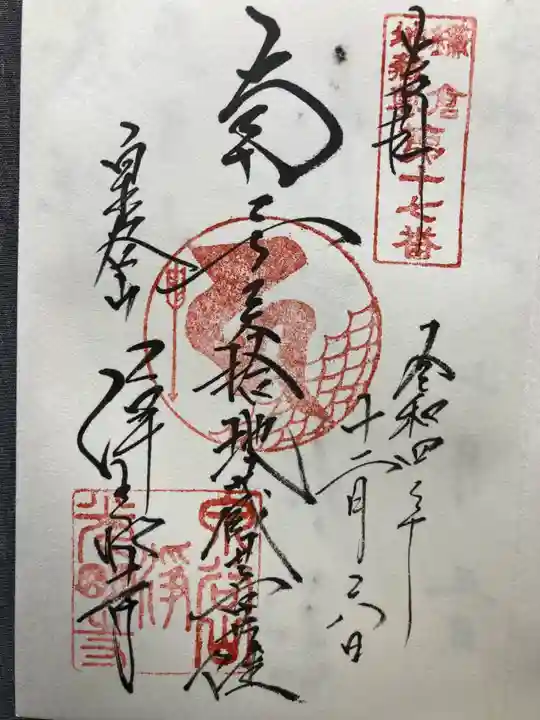 鎌倉
地蔵尊第十七番
奉拝
令和四年
十二月二八日
南無矢拾地蔵菩薩
泉谷山
浄光明寺
泉谷山
浄
光明寺